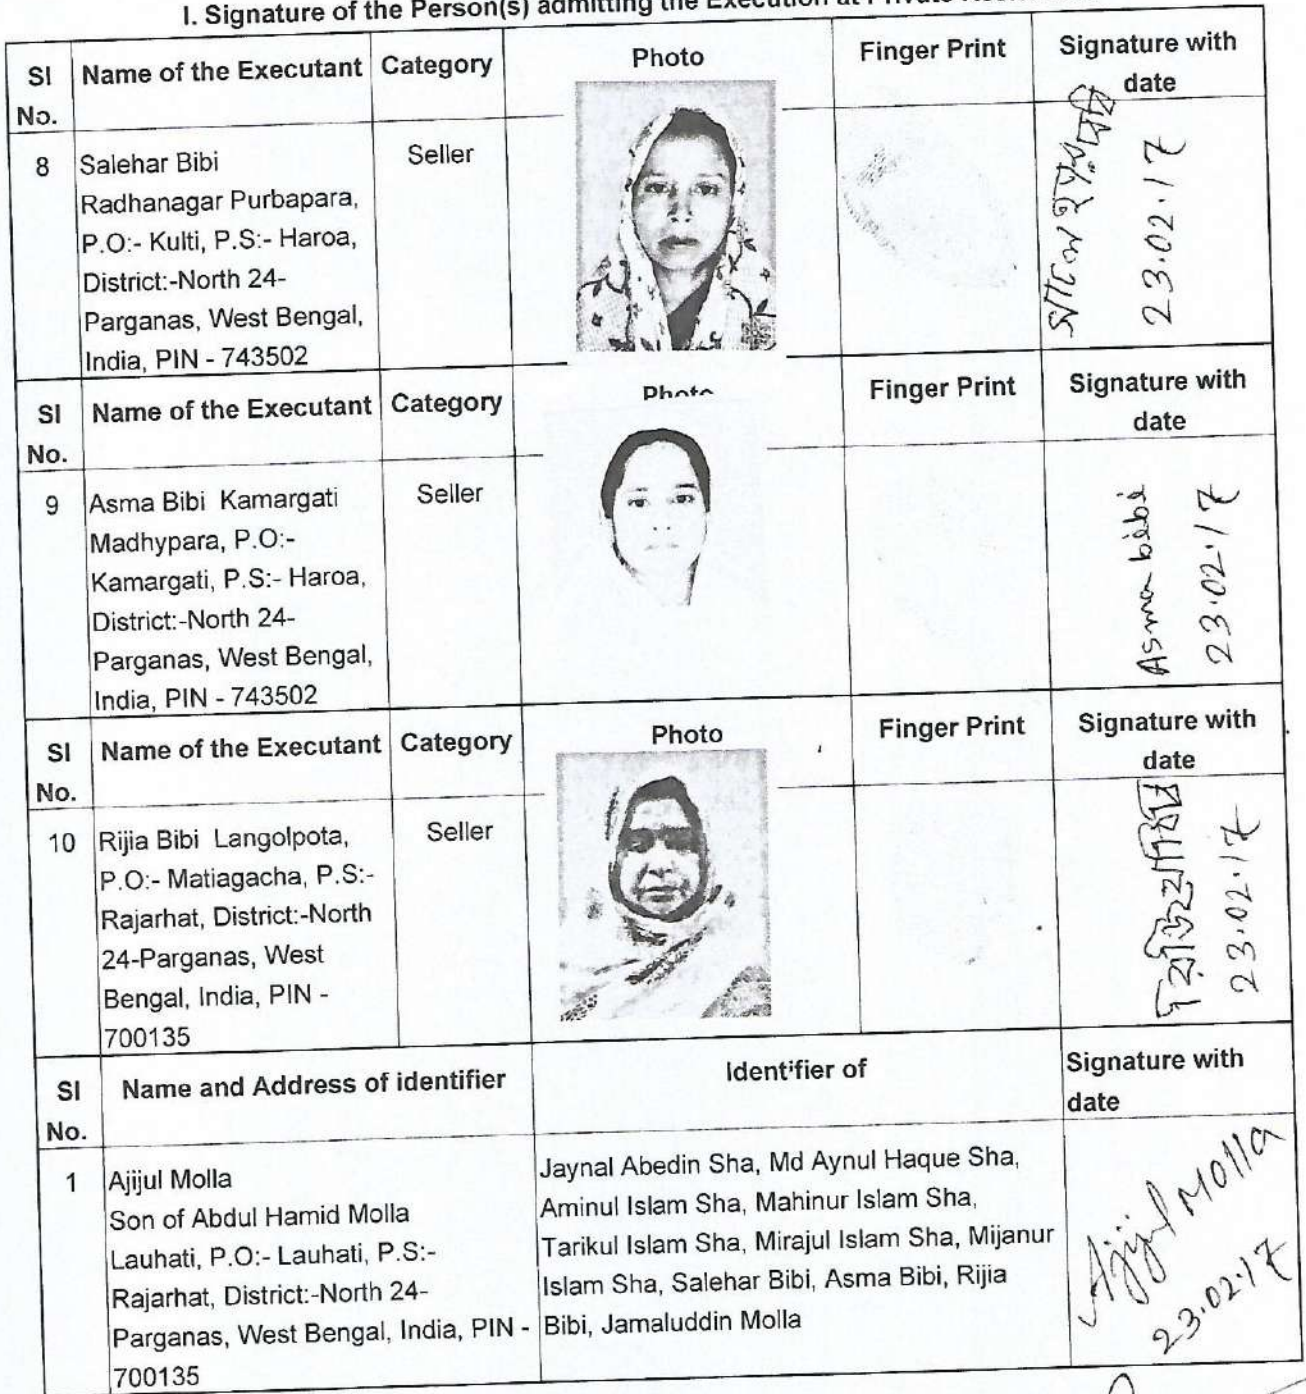 I. Signature of the Person(s) admitting the Execution at Private
Sl No. Name of the Executant Category Photo Finger Print Signature with date
8 Salehar Bibi Seller
Radhanagar Purbapara,
P.O:- Kulti, P.S:- Haroa,
District:-North 24-
Parganas, West Bengal,
India, PIN - 743502
23.02.17
Sl No. Name of the Executant Category Photo Finger Print Signature with date
9 Asma Bibi Kamargati Seller
Madhypara, P.O:-
Kamargati, P.S:- Haroa,
District:-North 24-
Parganas, West Bengal,
India, PIN - 743502
Asma bibi
23.02.17
Sl No. Name of the Executant Category Photo Finger Print Signature with date
10 Rijia Bibi Langolpota, Seller
P.O:- Matiagacha, P.S:-
Rajarhat, District:-North
24-Parganas, West
Bengal, India, PIN -
700135
23.02.17
Sl No. Name and Address of identifier Identifier of Signature with date
1 Ajijul Molla
Son of Abdul Hamid Molla
Lauhati, P.O:- Lauhati, P.S:-
Rajarhat, District:-North 24-
Parganas, West Bengal, India, PIN -
700135
Jaynal Abedin Sha, Md Aynul Haque Sha,
Aminul Islam Sha, Mahinur Islam Sha,
Tarikul Islam Sha, Mirajul Islam Sha, Mijanur
Islam Sha, Salehar Bibi, Asma Bibi, Rijia
Bibi, Jamaluddin Molla
Ajijul Molla
23.02.17